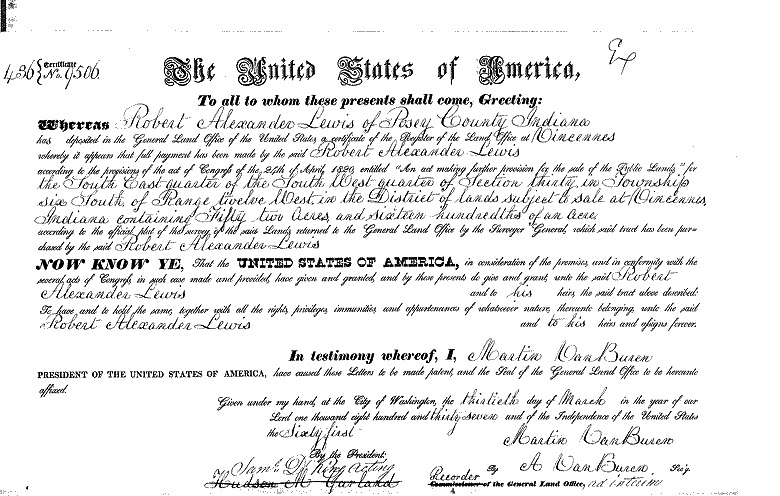 Ex
436 { Certificate No. 9506
The United States of America,
To all to whom these presents shall come, Greeting:
Whereas Robert Alexander Lewis of Posey County Indiana
has deposited in the General Land Office of the United States a certificate of the Register of the Land Office at Vincennes
whereby it appears that full payment has been made by the said Robert Alexander Lewis
according to the provisions of the act of Congress of the 24th of April 1820, entitled "An act making further provision for the sale of the Public Lands" for
the South East quarter of the South West quarter of Section thirty in Township
six South of Range twelve West in the District of lands subject to sale at Vincennes,
Indiana containing Fifty two Acres, and sixteen hundredths of an Acre
according to the official plat of the survey of the said Lands, returned to the General Land Office by the Surveyor General, which said tract has been pur-
chased by the said Robert Alexander Lewis
NOW KNOW YE, That the UNITED STATES OF AMERICA, in consideration of the premises, and in conformity with the
several acts of Congress, in such case made and provided, have given and granted, and by these presents do give and grant, unto the said Robert
Alexander Lewis and to his heirs, the said tract above described:
To have and to hold the same, together with all the rights, privileges, immunities, and appurtenances of whatsoever nature, thereunto belonging, unto the said
Robert Alexander Lewis and to his heirs and assigns forever.
In testimony whereof, I, Martin Van Buren
PRESIDENT OF THE UNITED STATES OF AMERICA, have caused these Letters to be made patent, and the Seal of the General Land Office to be hereunto
affixed.
Given under my hand, at the City of Washington, the thirtieth day of March in the year of our
Lord one thousand eight hundred and thirty seven and of the Independence of the United States
the Sixty first
Martin Van Buren
By the President:
By A Van Buren Sec'y.
Saml. D. King Acting
Hudson M. Garland Recorder
Commissioner of the General Land Office, ad interim